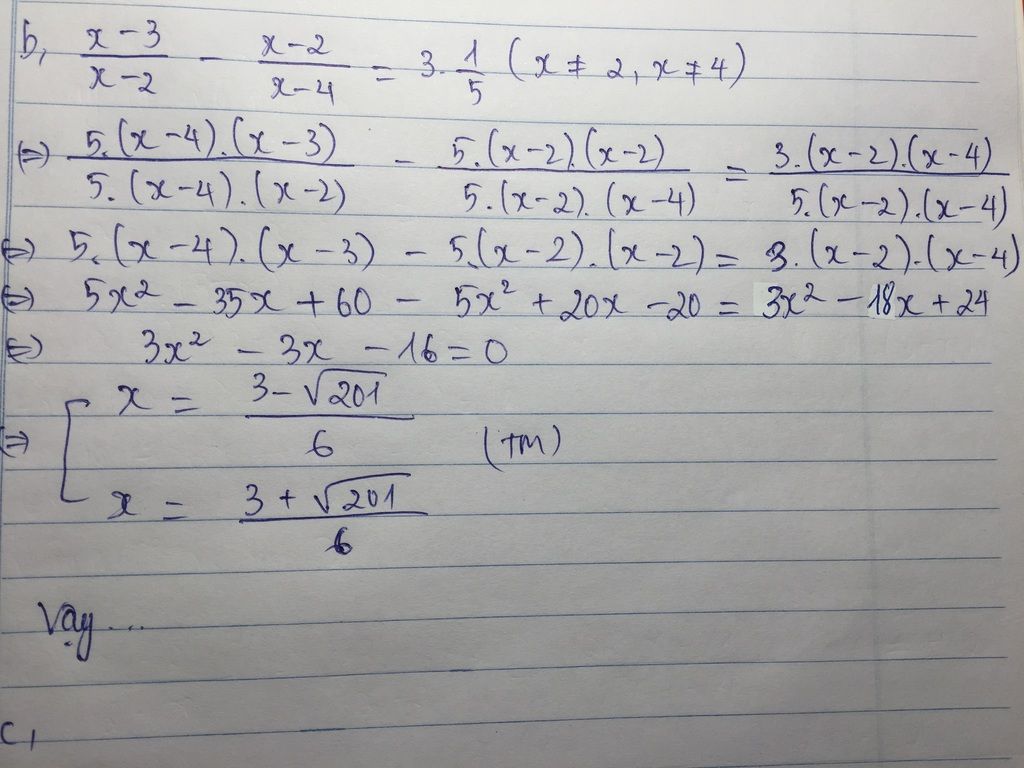 b, (x-3)/(x-2) - (x-2)/(x-4) = 3.1/5 (x ≠ 2, x ≠ 4)
(=) 5.(x-4).(x-3)/5.(x-4).(x-2) - 5.(x-2).(x-2)/5.(x-2).(x-4) = 3.(x-2).(x-4)/5.(x-2).(x-4)
(=) 5.(x-4).(x-3) - 5.(x-2).(x-2) = 3.(x-2).(x-4)
(=) 5x² - 35x + 60 - 5x² + 20x - 20 = 3x² - 18x + 24
(=) 3x² - 3x - 16 = 0
(=) [ x = (3-√201)/6
(TM)
x = (3+√201)/6
Vậy...
c,